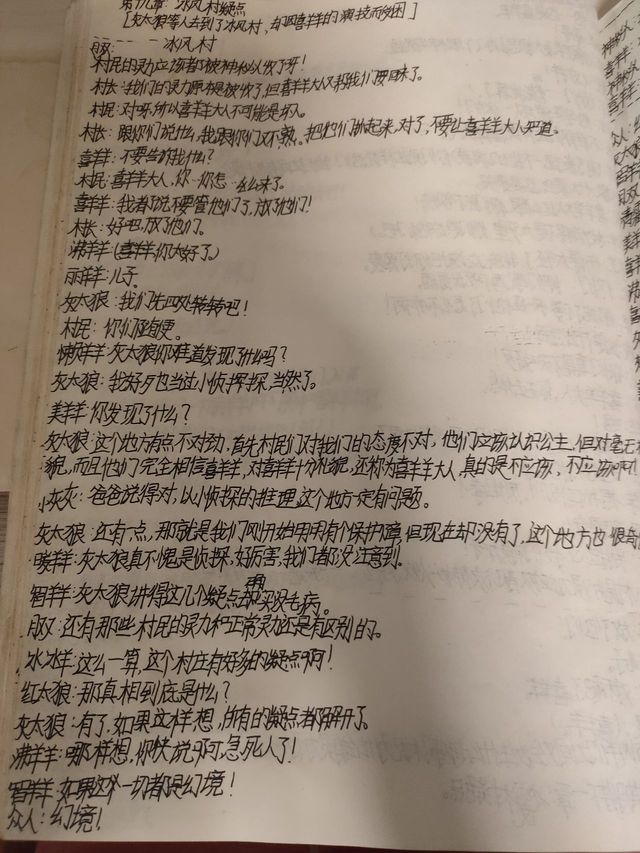 第十九章：冰风村疑点
[灰太狼等人去到了冰风村，却因喜羊羊的演技而被困]
冰风村
村民的灵力应该都被神秘人收了呀！
村长：我们的灵力原本是被收了，但喜羊羊大人又帮我们要回来了。
村民：对呀，所以喜羊羊大人不可能是坏人。
村长：跟你们说什么，我跟你们又不熟。把他们抓起来，对了，不要让喜羊羊大人知道。
喜羊羊：不要告诉我什么？
村民：喜羊羊大人，你…你怎…么来了。
喜羊羊：我都说不要管他们了，放了他们！
村长：好吧，放了他们。
沸羊羊（喜羊羊你太好了。）
丽羊羊：儿子。
灰太狼：我们先四处转转吧！
村民：你们随便。
懒羊羊：灰太狼你难道发现了什么吗？
灰太狼：我好歹也当过小侦探，当然了。
美羊羊：你发现了什么？
灰太狼：这个地方有点不对劲，首先村民们对我们的态度不对，他们应该认识公主，但对毫无礼
貌，而且他们完全相信喜羊羊，对喜羊羊十分礼貌，还称为喜羊羊大人，真的是不应该，不应该啊！
小灰灰：爸爸说得对，以小侦探的推理，这个地方一定有问题。
灰太狼：还有一点，那就是我们刚开始明明有个保护障，但现在却没有了，这个地方也很奇
暖羊羊：灰太狼真不愧是侦探，好厉害，我们都没注意到。
智羊羊：灰太狼讲得这几个疑点确实没毛病。
月双：还有那些村民的灵力和正常灵力还是有区别的。
冰冰羊：这么一算，这个村庄有好多的疑点啊！
红太狼：那真相到底是什么？
灰太狼：有了，如果这样想，所有的疑点都解开了。
沸羊羊：哪样想，你快说啊，急死人了！
智羊羊：如果这个一切都是幻境！
众人：幻境！